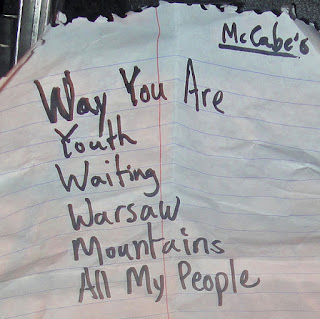 McCabe's
Way You Are
Youth
Waiting
Warsaw
Mountains
All My People